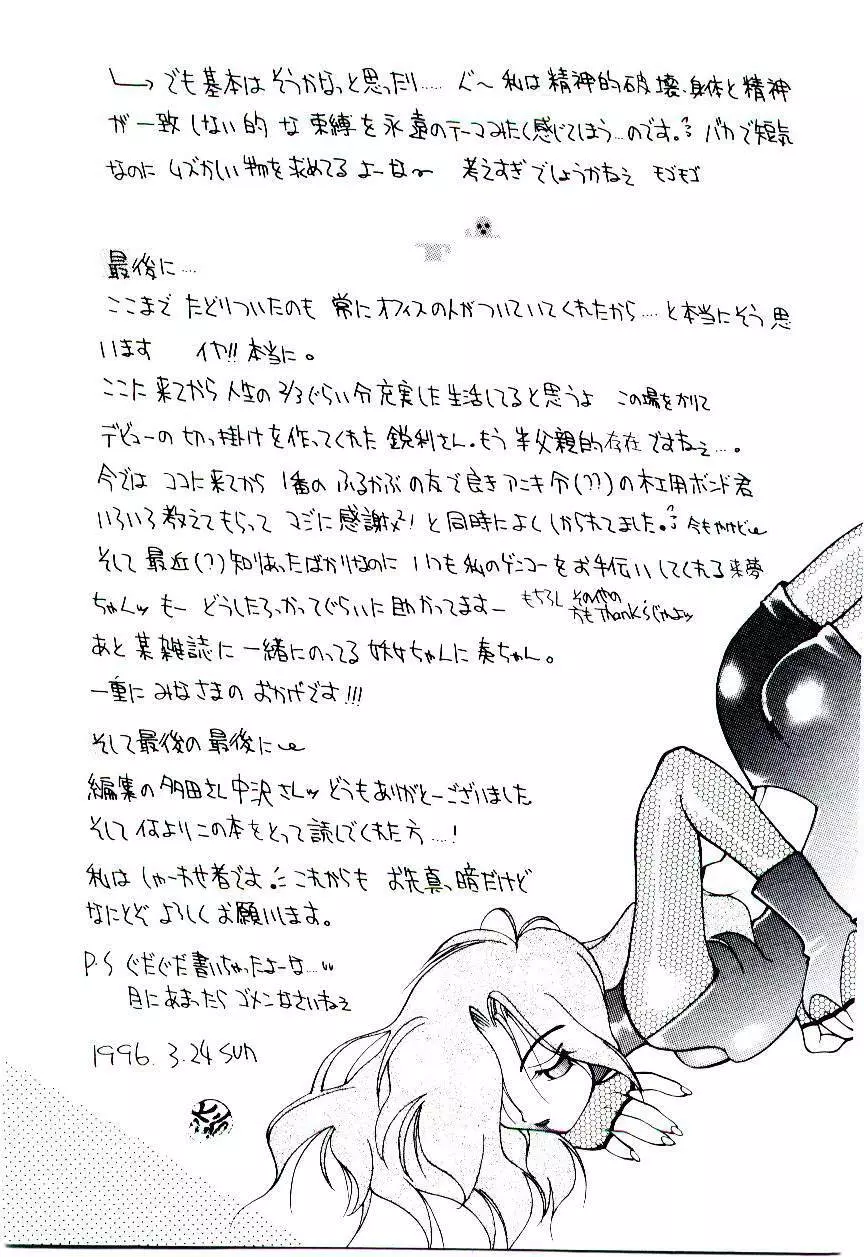 でも基本はそうかなっと思ったり…… ぐ〜 私は精神的破壊、身体と精神
が一致しない的な束縛を永遠のテーマみたく感じてしまう…のです。バカで短気
なのにムズかしい物を求めてるよーな〜 考えすぎでしょうかねえ モゴモゴ
最後に…
ここまでたどりついたのも 常にオフィスの人がついていてくれたから……と本当にそう思
います イヤ!! 本当に。
ここに来てから人生の2/3ぐらい分充実した生活してると思うよ この場をかりて
デビューの切っ掛けを作ってくれた鋭利さん、もう半父親的存在ですねぇ…。
今では ココに来てから 1番のふるかぶの友で良きアニキ分(??)の木工用ボンド君
いろいろ教えてもらって マジに感謝! と同時によくしかられてました。今もやけど
そして最近(?)知りあったばかりなのに いつも私のゲンコーをお手伝いしてくれる来夢
ちゃんッ もー どうしたろかってぐらいに助かってますー もちろん そのへやの
方もThank'sじゃよッ
あと某雑誌に一緒にのってる 妖女ちゃんに奏ちゃん。
一重にみなさまのおかげです!!!
そして最後の最後に
編集の多田さん中沢さんッ どうもありがとーございました
そして何よりこの本をとって読んでくれた方……!
私はしゃーわせ者です これからも お先真っ暗だけど
なにとぞ よろしくお願いします。
P.S ぐだぐだ書いちゃったよーな…
目にあまったらゴメンなさいねえ
1996. 3.24 SUN